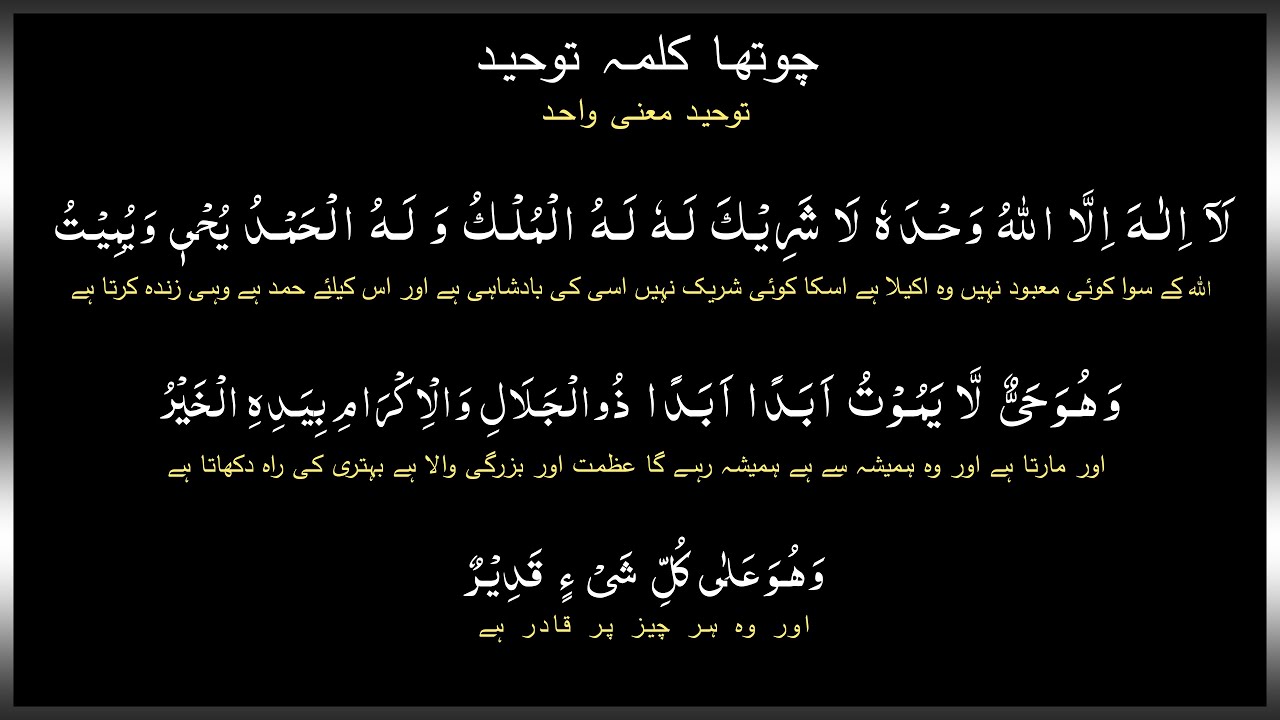 چوتھا کلمہ توحید
توحید معنی واحد
لَآ اِلٰہَ اِلَّا اللہُ وَحْدَہٗ لَا شَرِیْكَ لَہٗ لَہُ الْمُلْكُ وَ لَہُ الْحَمْدُ یُحْیٖ وَیُمِیْتُ
اللہ کے سوا کوئی معبود نہیں وہ اکیلا ہے اسکا کوئی شریک نہیں اسی کی بادشاہی ہے اور اس کیلئے حمد ہے وہی زندہ کرتا ہے
وَھُوَحَیٌّ لَّا یَمُوْتُ اَبَدًا اَبَدًا ذُوالْجَلَالِ وَالْاِكْرَامِ بِیَدِہِ الْخَیْرُ
اور مارتا ہے اور وہ ہمیشہ سے ہے ہمیشہ رہے گا عظمت اور بزرگی والا ہے بہتری کی راہ دکھاتا ہے
وَھُوَعَلٰی كُلِّ شَیْ ءٍ قَدِیْرٌ
اور وہ ہر چیز پر قادر ہے